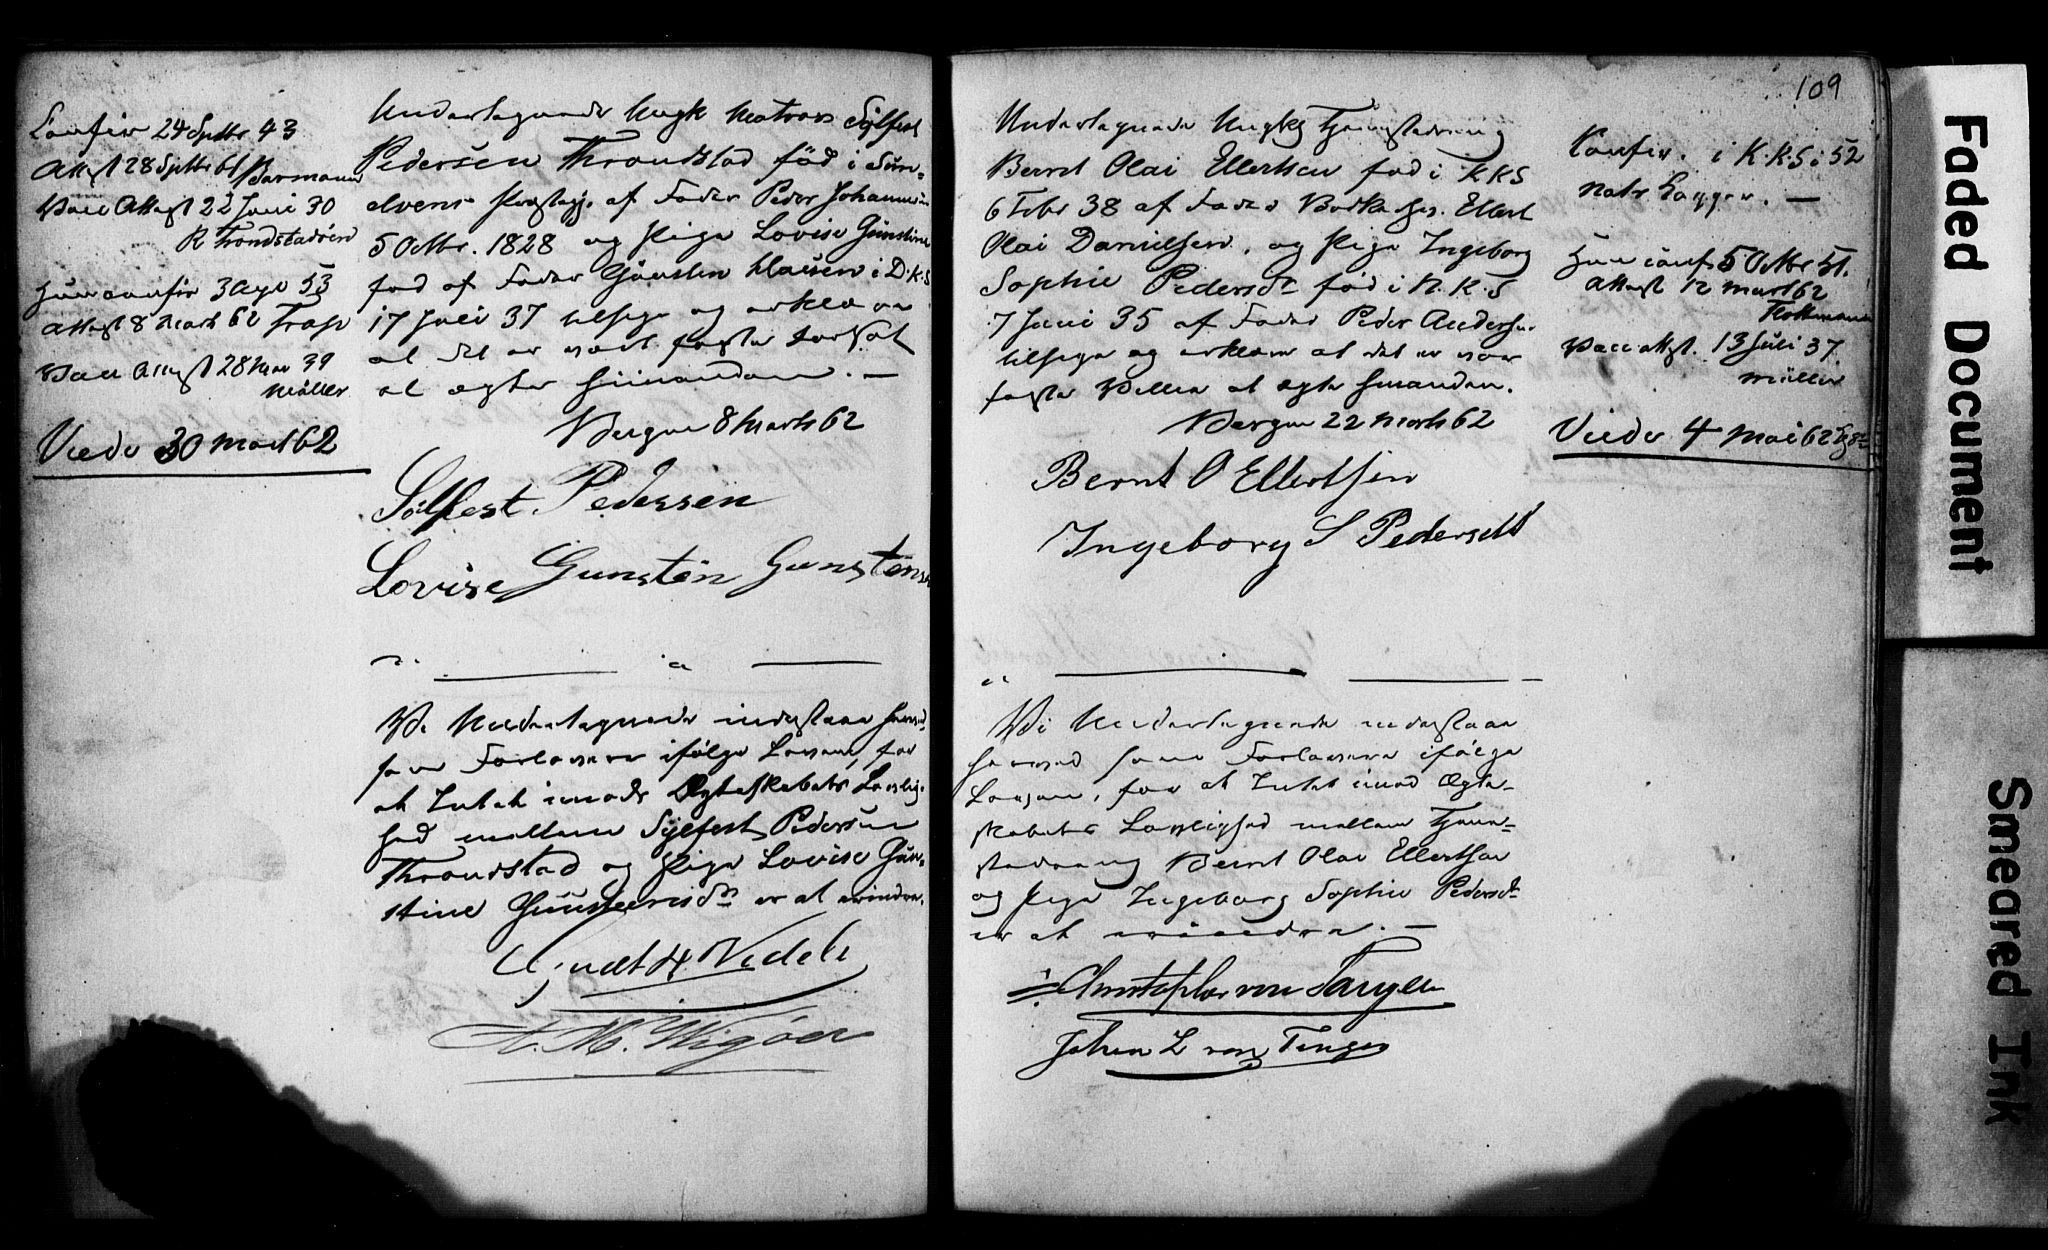 Confir 24 Septbr 43
Attest 28 Septbr 61 Bormann
Vacc Attest 22 Juni 30
R Trondstadøen
Hun confir 3 Apr 53
Attest 8 Marts 62 Trap
Vacc Attest 28 Mai 39
Møller
Viede 30 Marts 62
Undertegnede Ungk Matros Sylfest
Pedersen Throndstad fød i Sun-
elvens Præstegj. af Fader Peder Johannesen
5 Octbr. 1828 og Pige Lovise Gunstine
fød af Fader Gunsten Klausen i D.K.S
17 Juli 37 tilsige og erklære
at det er vort faste Forsæt
at ægte hinanden. —
Bergen 8 Marts 62
Sølfest Pedersen
Lovise Gunsten Gunstens
Vi Undertegnede indestaae herved
som Forlovere ifølge Loven, for
at Intet imod Ægteskabets Lovlig-
hed mellem Sylfest Pedersen
Throndstad og Pige Lovise Gun-
stine Gunstensdtr er at erindre.
A. M. Wigøer
109
Undertegnede Ungkl Tjenestedreng
Bernt Olai Ellertsen fød i KKS
6 Febr 38 af Fader Ellert
Olai Danielsen, og Pige Ingeborg
Sophie Pedersdtr fød i N.K.S
7 Juni 35 af Fader Peder Andersen
tilsige og erklære at det er vor
faste Villie at ægte hinanden.
Bergen 22 Marts 62
Bernt O Ellertsen
Ingeborg S Pedersdtt
Vi Undertegnede indestaae
herved som Forlovere ifølge
Loven, for at Intet imod Ægte-
skabets Lovlighed mellem Tjene-
stedreng Bernt Olai Ellertsen
og Pige Ingeborg Sophie Pedersdtr
er at erindre. —
Christopher von Tangen
Johan L von Tangen
Confir. i K.K.S i 52
Natr Lagger. —
Hun conf 5 Octbr 51.
Attest 12 Marts 62
Vacc attst. 13 Juli 37.
Møller
Viede 4 Mai 62
Faded Document
Smeared Ink